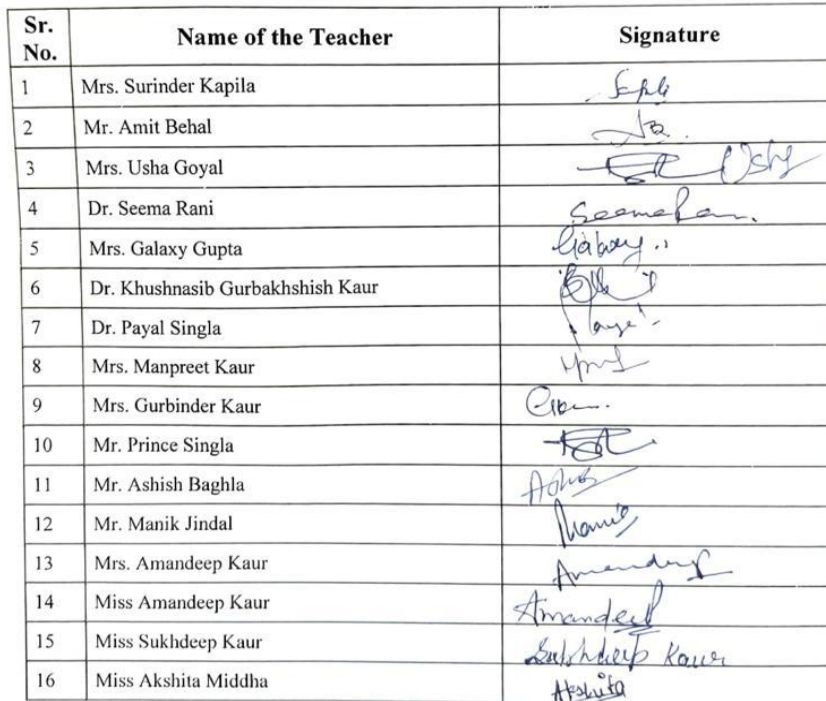 Sr. No. Name of the Teacher Signature
1 Mrs. Surinder Kapila
2 Mr. Amit Behal
3 Mrs. Usha Goyal Usha
4 Dr. Seema Rani Seema Rani
5 Mrs. Galaxy Gupta Galaxy
6 Dr. Khushnasib Gurbakhshish Kaur
7 Dr. Payal Singla Payal
8 Mrs. Manpreet Kaur
9 Mrs. Gurbinder Kaur
10 Mr. Prince Singla
11 Mr. Ashish Baghla
12 Mr. Manik Jindal Manik
13 Mrs. Amandeep Kaur Amandeep
14 Miss Amandeep Kaur Amandeep
15 Miss Sukhdeep Kaur Sukhdeep Kaur
16 Miss Akshita Middha Akshita